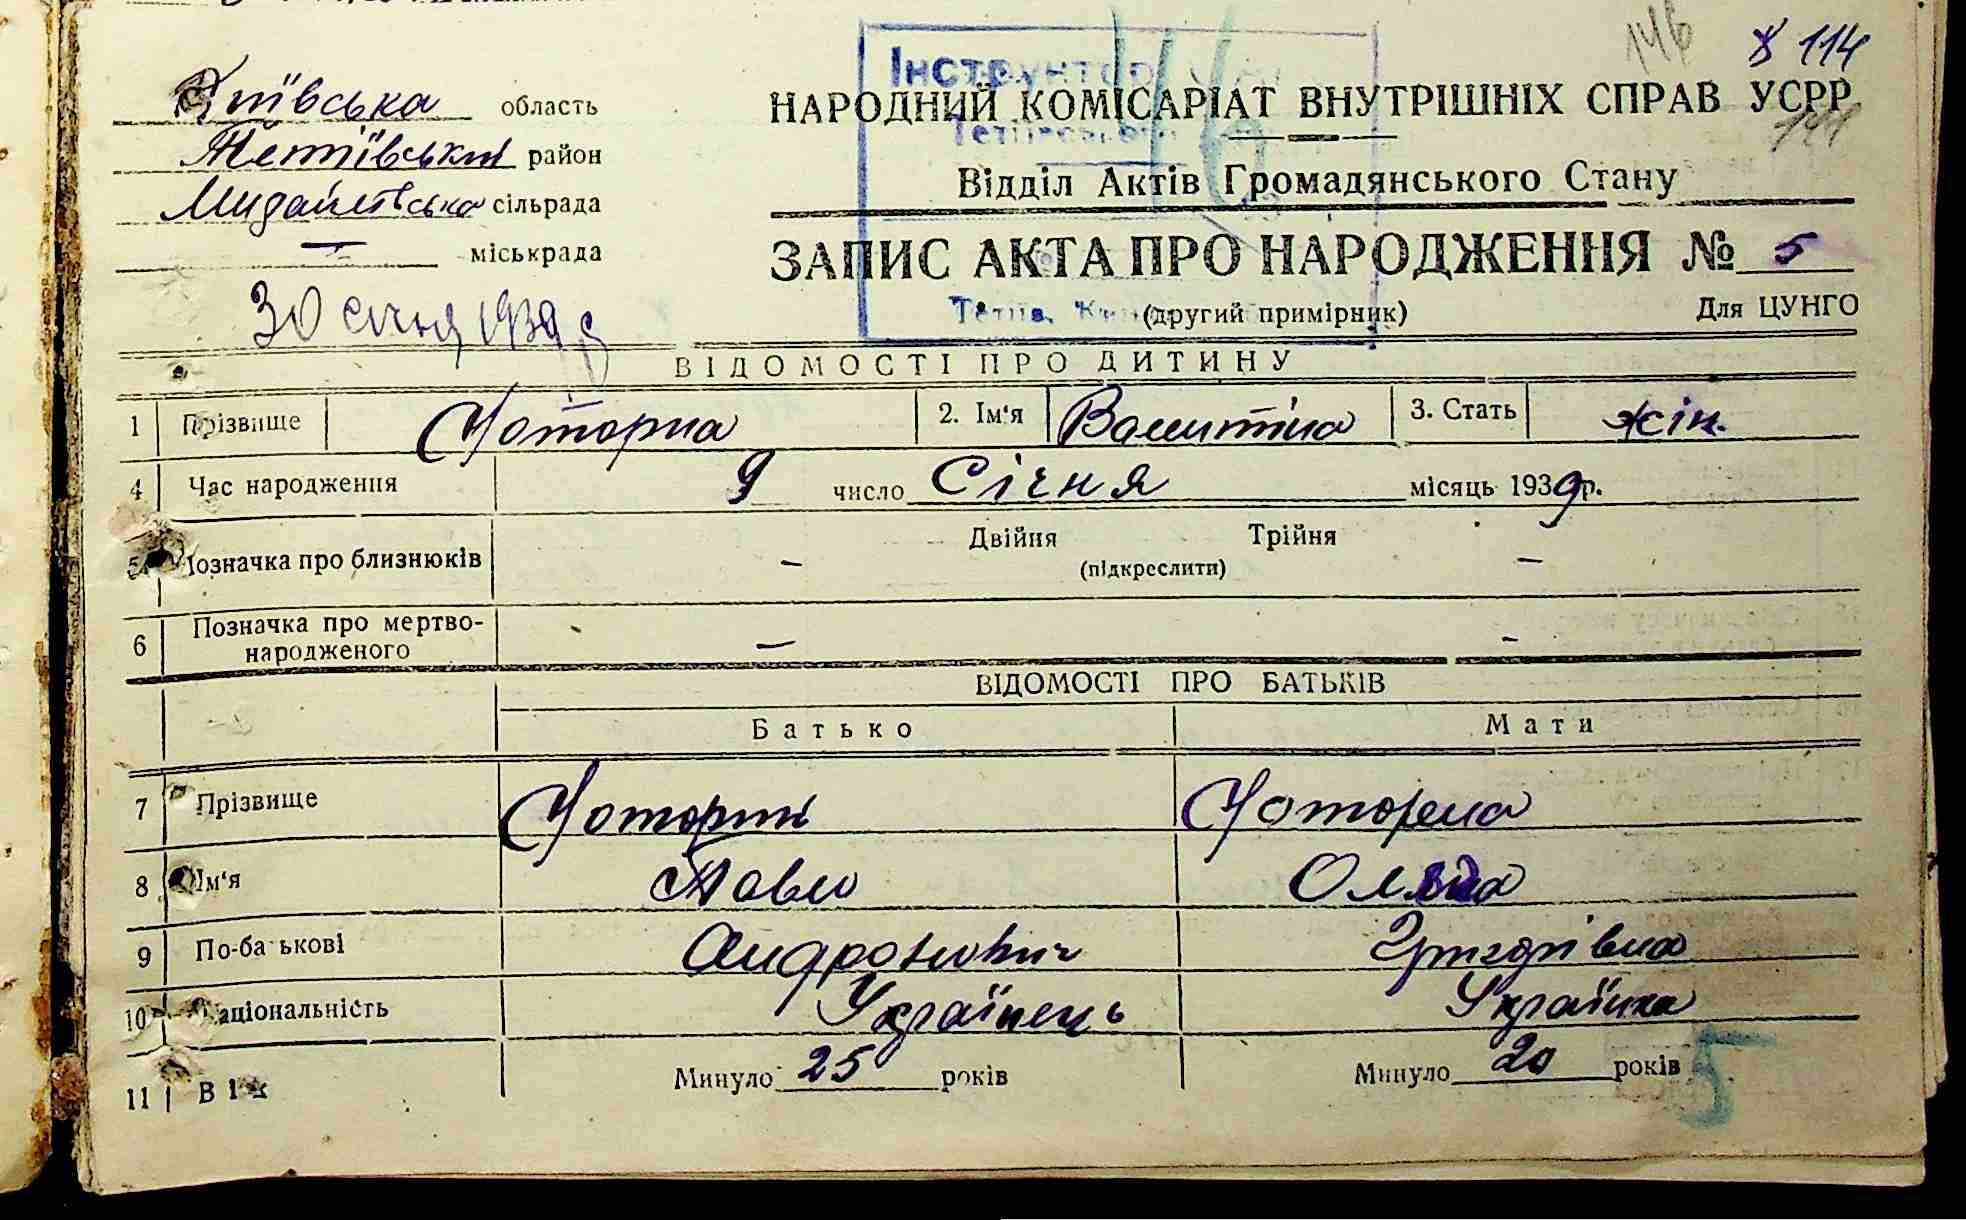 146 8 114
Київська область
НАРОДНИЙ КОМІСАРІАТ ВНУТРІШНІХ СПРАВ УСРР
Тетіївський район
Відділ Актів Громадянського Стану
сільрада
міськрада
ЗАПИС АКТА ПРО НАРОДЖЕННЯ № 5
30 січня 1939 р
(другий примірник) Для ЦУНГО
ВІДОМОСТІ ПРО ДИТИНУ
1 Прізвище Чоторна 2. Ім'я Валентіна 3. Стать жін.
4 Час народження 9 число Січня місяць 1939 р.
5 Позначка про близнюків – Двійня Трійня –
(підкреслити)
6 Позначка про мертво-
народженого – –
ВІДОМОСТІ ПРО БАТЬКІВ
Батько Мати
7 Прізвище Чоторний Чоторна
8 Ім'я Павло
9 По-батькові Андронович Григорівна
10 Національність Українець Українка
11 Вік Минуло 25 років Минуло 20 років 5